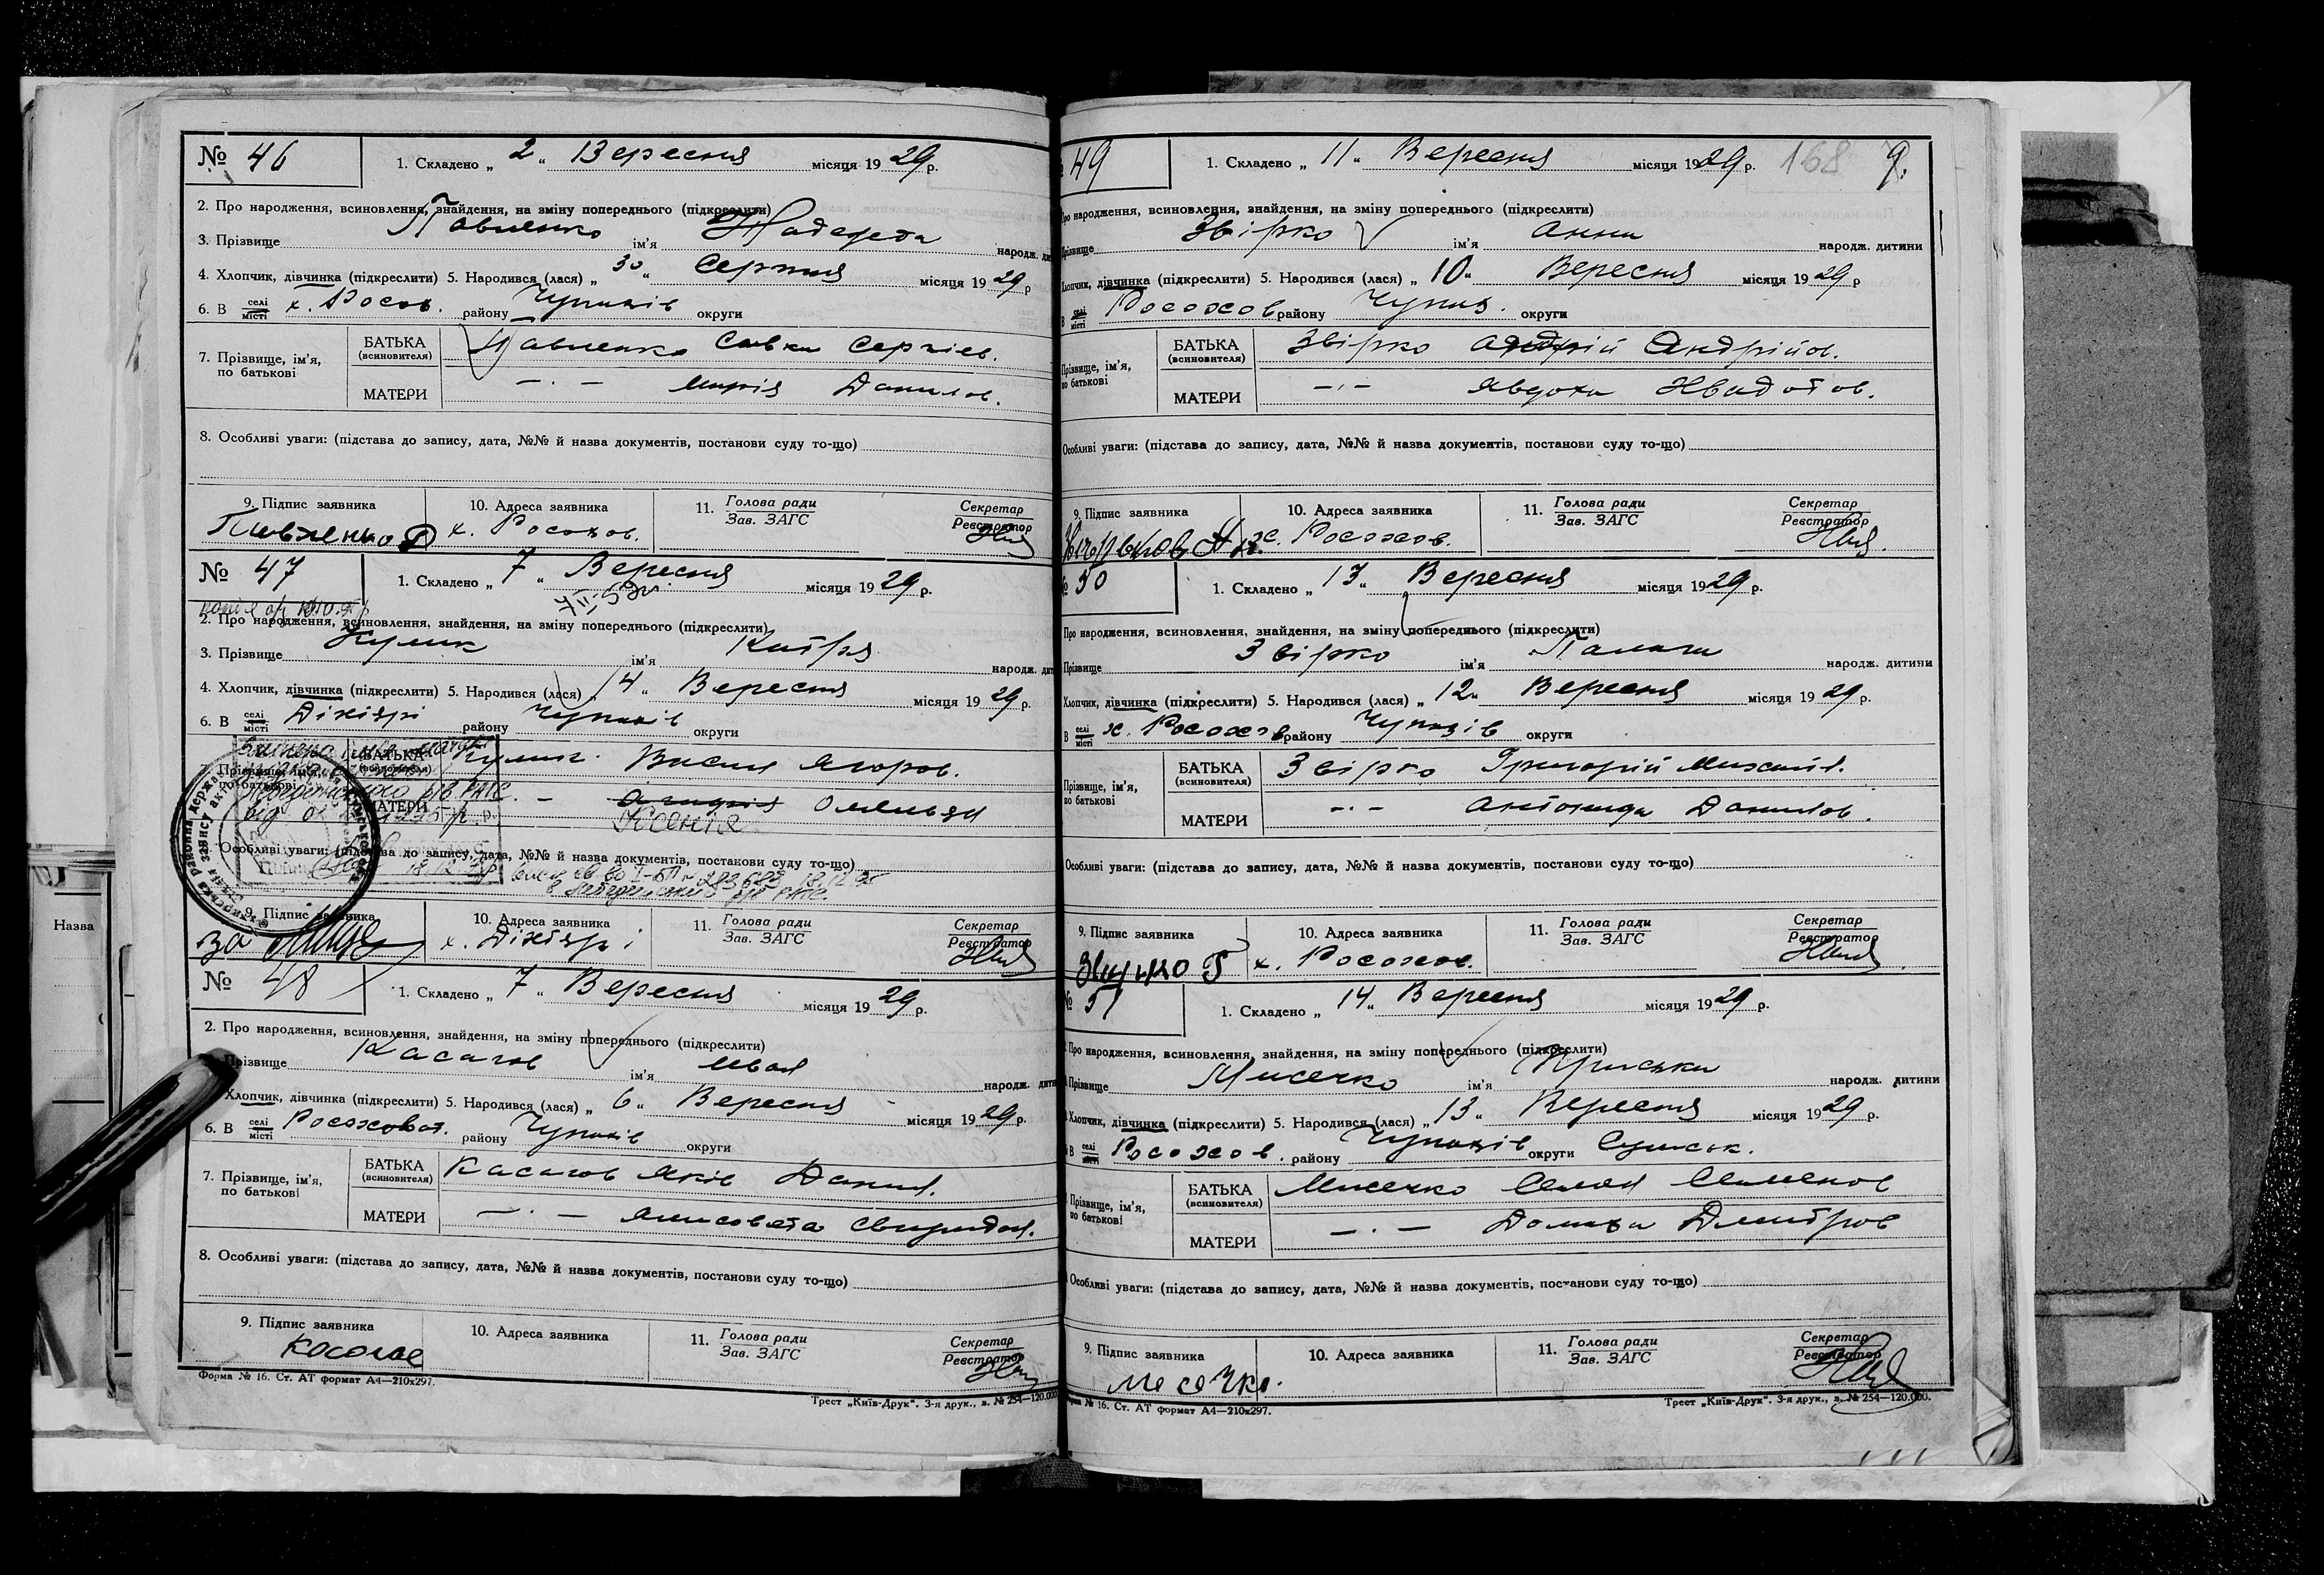 № 46
1. Складено „ 2 “ Вересня місяця 1929 р.
2. Про народження, всиновлення, знайдення, на зміну попереднього (підкреслити)
3. Прізвище Павленко ім'я народж.
4. Хлопчик, дівчинка (підкреслити) 5. Народився (лася) „ 30 “ Серпня місяця 1929 р
6. В селі місті х. Росох. району Чупахів округи
7. Прізвище, ім'я, по батькові
БАТЬКА (всиновителя) Павленко Савка Сергіев.
МАТЕРИ —·— Марія Данилов.
8. Особливі уваги: (підстава до запису, дата, №№ й назва документів, постанови суду то-що)
9. Підпис заявника 10. Адреса заявника 11. Голова ради Зав. ЗАГС Секретар Реєстратор
х. Росохов.
№ 47
1. Складено „ 7 “ Вересня місяця 1929 р.
2. Про народження, всиновлення, знайдення, на зміну попереднього (підкреслити)
3. Прізвище Кулик ім'я Катря народж.
4. Хлопчик, дівчинка (підкреслити) 5. Народився (лася) „ 4 “ Вересня місяця 1929 р.
6. В селі місті Дігтярі району Чупахів округи
7. Прізвище, ім'я, по батькові
БАТЬКА (всиновителя) Кулик Васил Ягоров.
МАТЕРИ —
Ксенія
Особливі уваги: (підстава до запису, дата, №№ й назва документів, постанови суду то-що)
9. Підпис заявника 10. Адреса заявника 11. Голова ради Зав. ЗАГС Секретар Реєстратор
за х. Дігтярі
№ 48
1. Складено „ 7 “ Вересня місяця 1929 р.
2. Про народження, всиновлення, знайдення, на зміну попереднього (підкреслити)
Прізвище Касагов ім'я Иван народж.
Хлопчик, дівчинка (підкреслити) 5. Народився (лася) „ 6 “ Вересня місяця 1929 р.
6. В селі місті Росоховат. району Чупахів округи
7. Прізвище, ім'я, по батькові
БАТЬКА (всиновителя) Касагов Яків Данил.
МАТЕРИ —·— Ялисовета Свиридон.
8. Особливі уваги: (підстава до запису, дата, №№ й назва документів, постанови суду то-що)
9. Підпис заявника 10. Адреса заявника 11. Голова ради Зав. ЗАГС Секретар Реєстратор
Форма № 16. Ст. АТ формат А4—210x297.
Трест „Київ-Друк“. 3-я друк., в. № 254—120.000
49
1. Складено „ 11 “ Вересня місяця 1929 р.
168
9.
Про народження, всиновлення, знайдення, на зміну попереднього (підкреслити)
Прізвище Звірко ім'я Анна народж. дитини
Хлопчик, дівчинка (підкреслити) 5. Народився (лася) „ 10 “ Вересня місяця 1929 р
В селі місті Росохов району Чупах. округи
Прізвище, ім'я, по батькові
БАТЬКА (всиновителя) Звірко Андрій Андрійов.
МАТЕРИ —·— Явдоха
Особливі уваги: (підстава до запису, дата, №№ й назва документів, постанови суду то-що)
9. Підпис заявника 10. Адреса заявника 11. Голова ради Зав. ЗАГС Секретар Реєстратор
х. Росохов.
№ 50
1. Складено „ 13 “ Вересня місяця 1929 р.
Про народження, всиновлення, знайдення, на зміну попереднього (підкреслити)
Прізвище Звірко ім'я народж. дитини
Хлопчик, дівчинка (підкреслити) 5. Народився (лася) „ 12 “ Вересня місяця 1929 р.
В селі місті х. Росохов району Чупахів округи
Прізвище, ім'я, по батькові
БАТЬКА (всиновителя) Звірко Григорій Михайл.
МАТЕРИ —·— Антонида Данилов.
Особливі уваги: (підстава до запису, дата, №№ й назва документів, постанови суду то-що)
9. Підпис заявника 10. Адреса заявника 11. Голова ради Зав. ЗАГС Секретар Реєстратор
х. Росохов.
№ 51
1. Складено „ 14 “ Вересня місяця 1929 р.
Про народження, всиновлення, знайдення, на зміну попереднього (підкреслити)
Прізвище Мисечко ім'я Приська народж. дитини
Хлопчик, дівчинка (підкреслити) 5. Народився (лася) „ 13 “ Вересня місяця 1929 р.
В селі місті Росохов. району Чупахів округи Сумськ.
Прізвище, ім'я, по батькові
БАТЬКА (всиновителя) Мисечко Семен Семенов
МАТЕРИ —·— Домаха Дмитров
Особливі уваги: (підстава до запису, дата, №№ й назва документів, постанови суду то-що)
9. Підпис заявника 10. Адреса заявника 11. Голова ради Зав. ЗАГС Секретар Реєстратор
Месечко.
№ 16. Ст. АТ формат А4—210x297.
Трест „Київ-Друк“. 3-я друк., в. № 254—120.000.
Назва